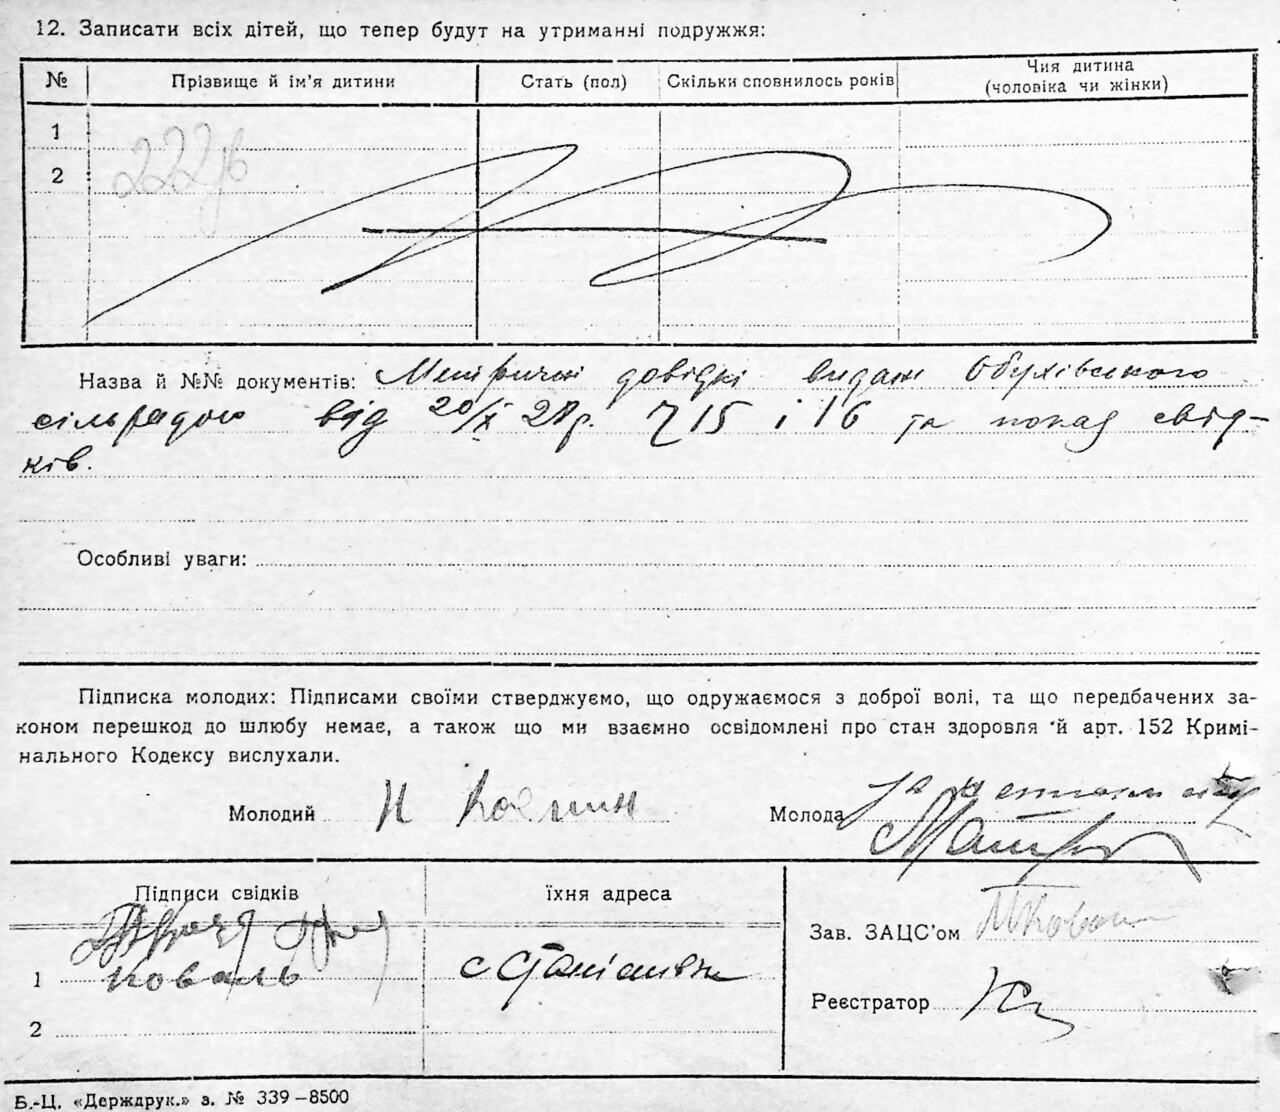 12. Записати всіх дітей, що тепер будут на утриманні подружжя:
№ Прізвище й ім'я дитини Стать (пол) Скільки сповнилось років Чия дитина
(чоловіка чи жінки)
1
2
Назва й №№ документів: Метричні довідкі видані Обухівського
сільрадою від 20/X 28р. 715 і 16 та показ свід-
ків.
Особливі уваги:
Підписка молодих: Підписами своїми стверджуємо, що одружаємося з доброї волі, та що передбачених за-
коном перешкод до шлюбу немає, а також що ми взаємно освідомлені про стан здоровля й арт. 152 Кримі-
нального Кодексу вислухали.
Молодий Н
Молода
Підписи свідків їхня адреса
Зав. ЗАЦС'ом
1 Коваль с
Реєстратор
2
Б.-Ц. «Держдрук.» з. № 339–8500